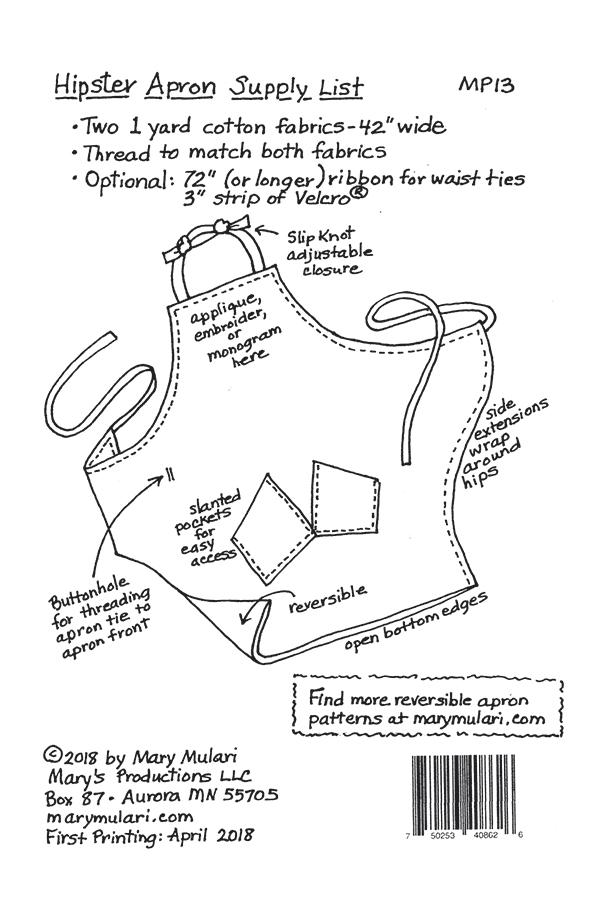 Hipster Apron Supply List
MP13
• Two 1 yard cotton fabrics - 42" wide
• Thread to match both fabrics
• Optional: 72" (or longer) ribbon for waist ties
3" strip of Velcro®
Slip Knot
adjustable
closure
applique,
embroider,
or
monogram
here
side
extensions
wrap
around
hips
slanted
pockets
for
easy
access
Buttonhole
for threading
apron tie to
apron front
reversible
open bottom edges
Find more reversible apron
patterns at marymulari.com
©2018 by Mary Mulari
Mary's Productions LLC
Box 87 • Aurora MN 55705
marymulari.com
First Printing: April 2018
7 50253 40862 6